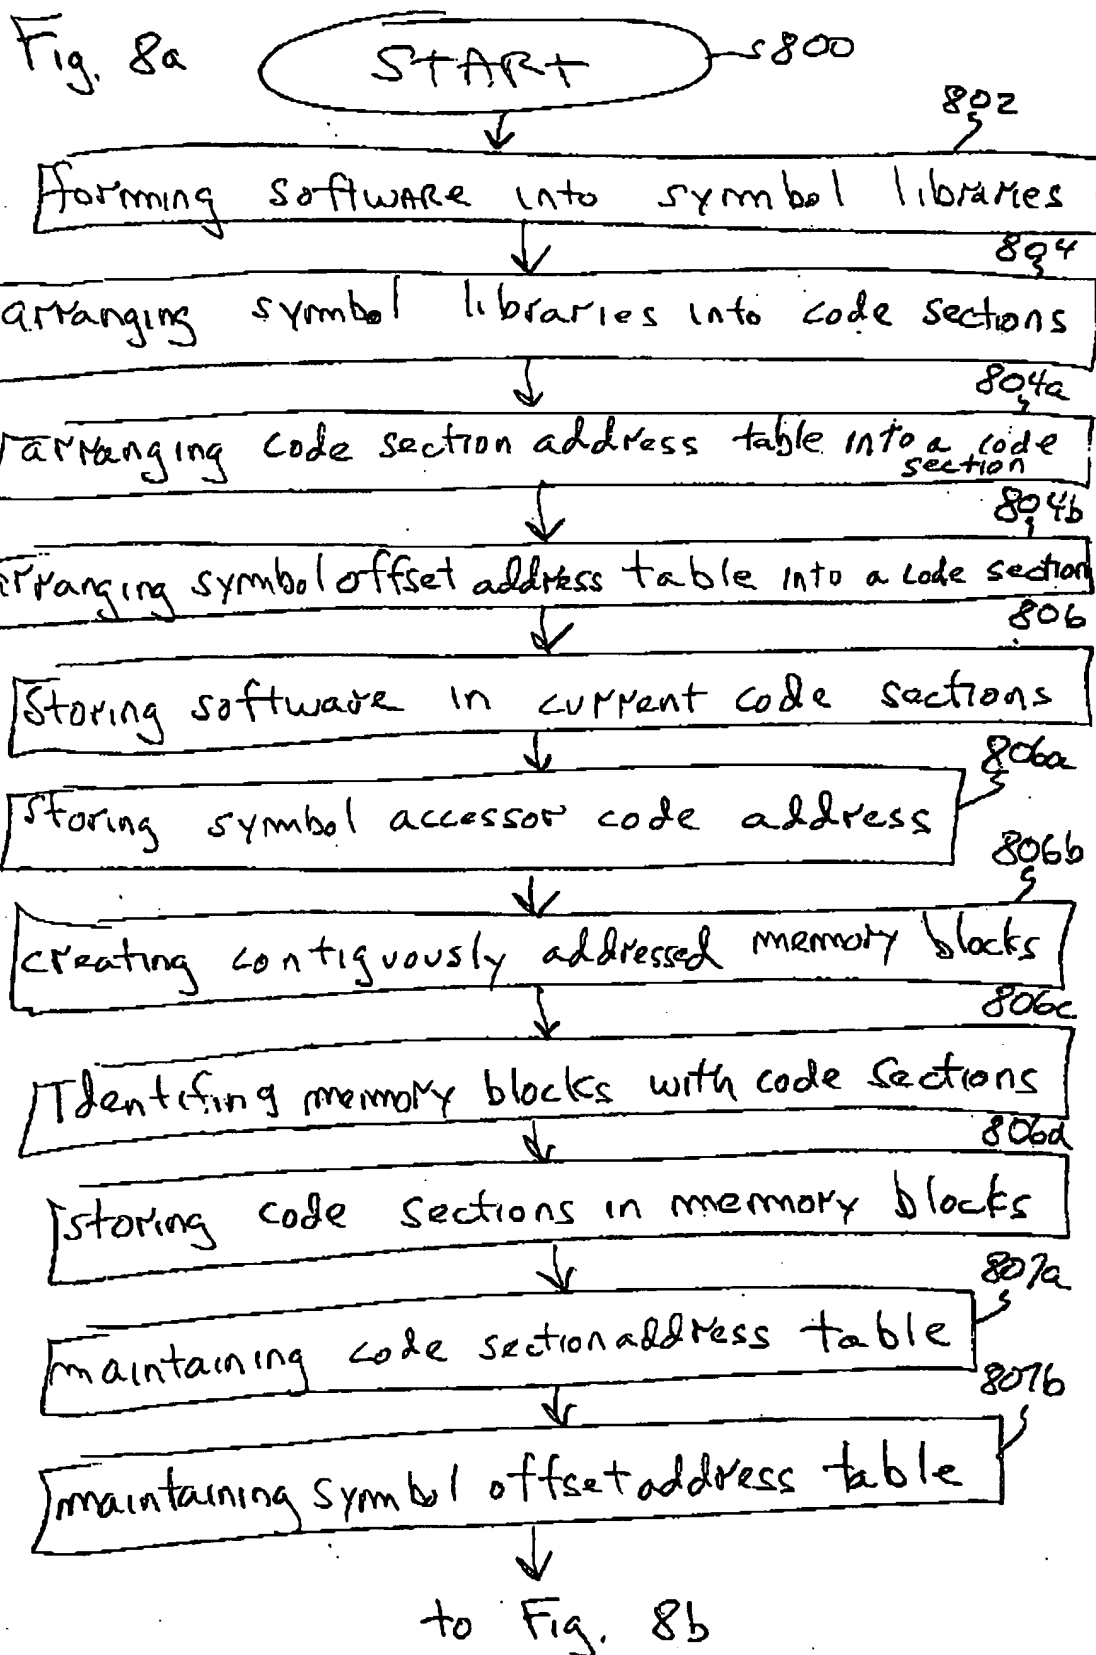 Fig. 8a START 800
802
forming software into symbol libraries
804
arranging symbol libraries into code sections
804a
arranging code section address table into a code section
804b
arranging symbol offset address table into a code section
806
Storing software in current code sections
806a
storing symbol accessor code address
806b
creating contiguously addressed memory blocks
806c
Identifing memory blocks with code sections
806d
storing code sections in memory blocks
807a
maintaining code section address table
807b
maintaining symbol offset address table
to Fig. 8b